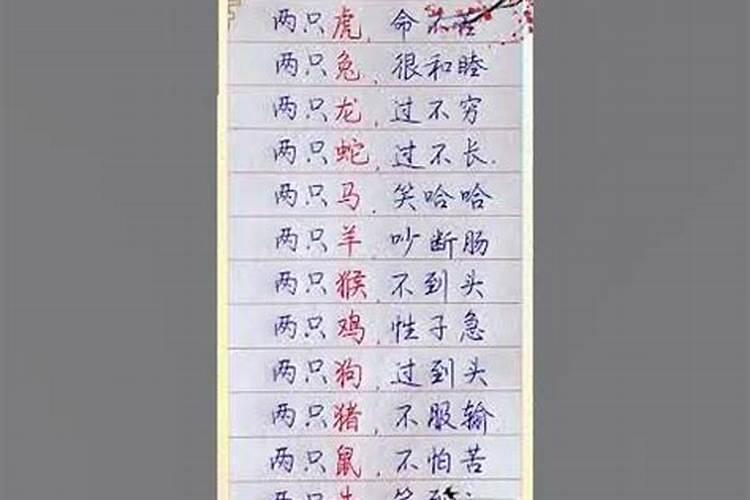 两只虎，命不苦
两只兔，很和睦
两只龙，过不穷
两只蛇，过不长.
两只马，笑哈哈
两只羊，吵断肠
两只猴，不到头
两只鸡，性子急
两只狗，过到头
两只猪，不服输
两只鼠，不怕苦
两只牛